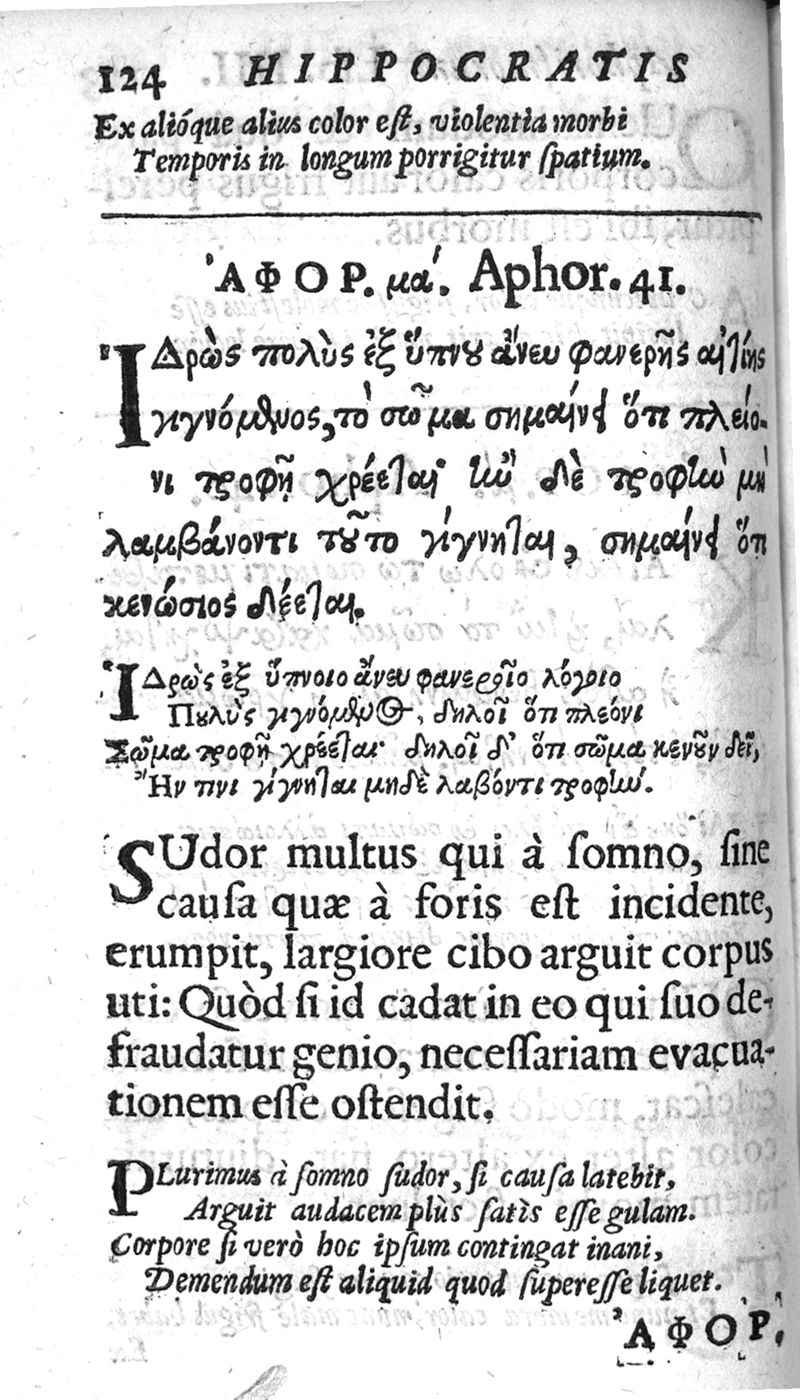 124 HIPPOCRATIS
Ex alióque alius color eſt, violentia morbi
Temporis in longum porrigitur ſpatium.
ἈΦΟΡ. μα΄. Aphor. 41.
ἹΔρὼς πολὺς ἐξ ὕπνου ἄνευ φανερῆς αἰτίης
γιγνόμενος, τὸ σῶμα σημαίνει ὅτι πλείο-
νι τροφῇ χρέεται· ἢν δὲ τροφὴν μὴ
λαμβάνοντι τοῦτο γίγνηται, σημαίνει ὅτι
κενώσιος δέεται.
ἹΔρὼς ἐξ ὕπνοιο ἄνευ φανεροῖο λόγοιο
Πουλὺς γιγνόμενος, δηλοῖ ὅτι πλέονι
Σῶμα τροφῇ χρέεται· δηλοῖ δ' ὅτι σῶμα κενοῦν δεῖ,
Ἢν τινι γίγνηται μηδὲ λαβόντι τροφήν.
SUdor multus qui à ſomno, ſine
cauſa quæ à foris eſt incidente,
erumpit, largiore cibo arguit corpus
uti: Quòd ſi id cadat in eo qui ſuo de-
fraudatur genio, neceſſariam evacua-
tionem eſſe oſtendit.
PLurimus à ſomno ſudor, ſi cauſa latebit,
Arguit audacem plùs ſatìs eſſe gulam.
Corpore ſi verò hoc ipſum contingat inani,
Demendum eſt aliquid quod ſupereſſe liquet.
ἈΦΟΡ.